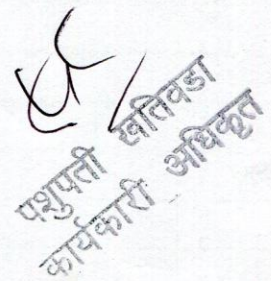 पशुपती खतिवडा
कार्यकारी अधिकृत